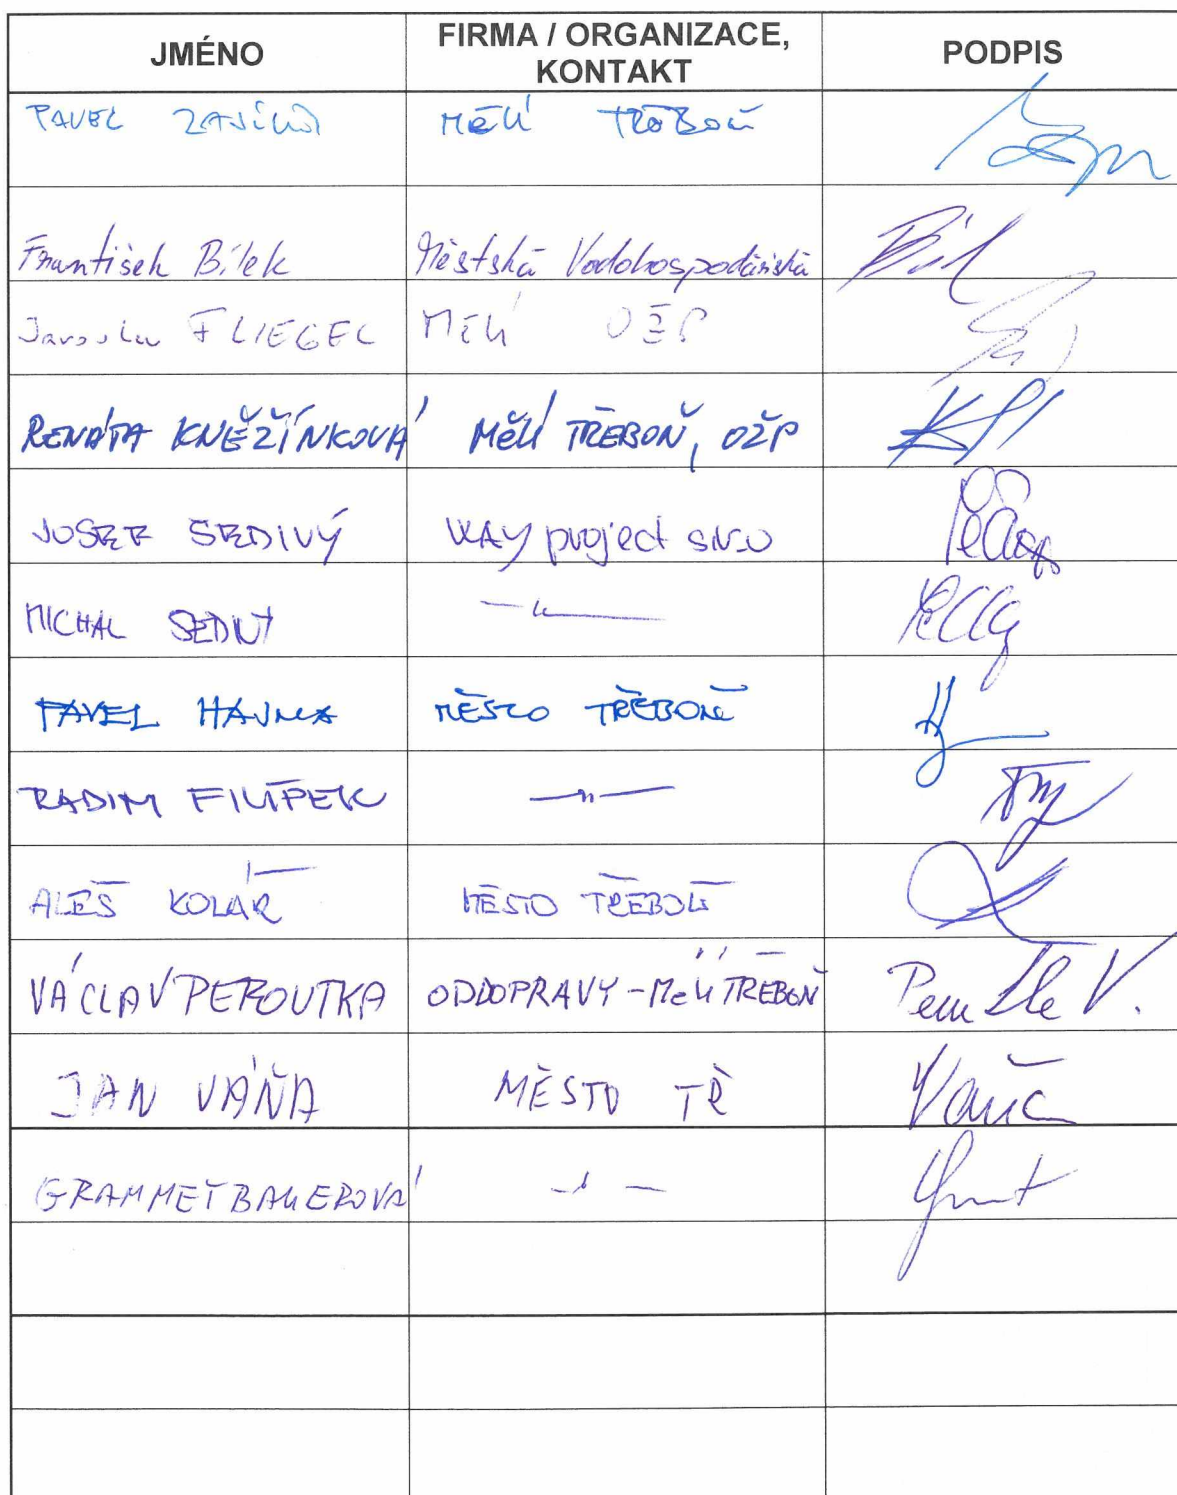 JMÉNO FIRMA / ORGANIZACE, KONTAKT PODPIS
PAVEL MěÚ TŘEBOŇ
František Bílek Městská Vodohospodářská
Jaroslav FLIEGEL MěÚ OŽP
RENÁTA KNĚŽÍNKOVÁ MěÚ TŘEBOŇ, OŽP
JOSEF ŠEDIVÝ WAY project s.r.o
MICHAL —"—
PAVEL HAJNA MĚSTO TŘEBOŇ
RADIM FILÍPEK —"—
ALEŠ KOLÁŘ MĚSTO TŘEBOŇ
VÁCLAV PEROUTKA OD DOPRAVY - MěÚ TŘEBOŇ
JAN VÁŇA MĚSTO TŘ Váňa
GRAMMETBAUEROVÁ —"—